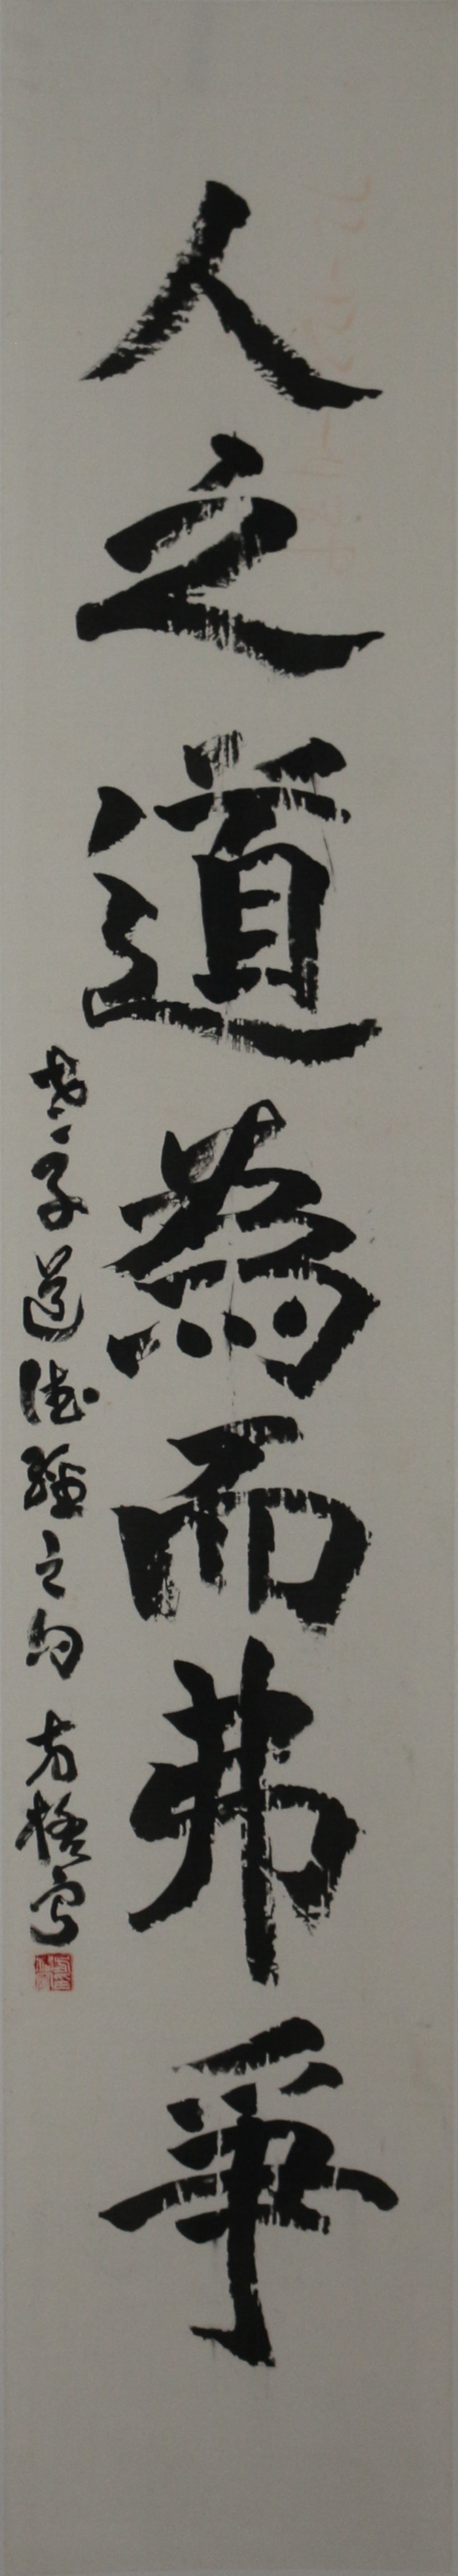 人之道為而弗爭
老子道德經之句 方梧写